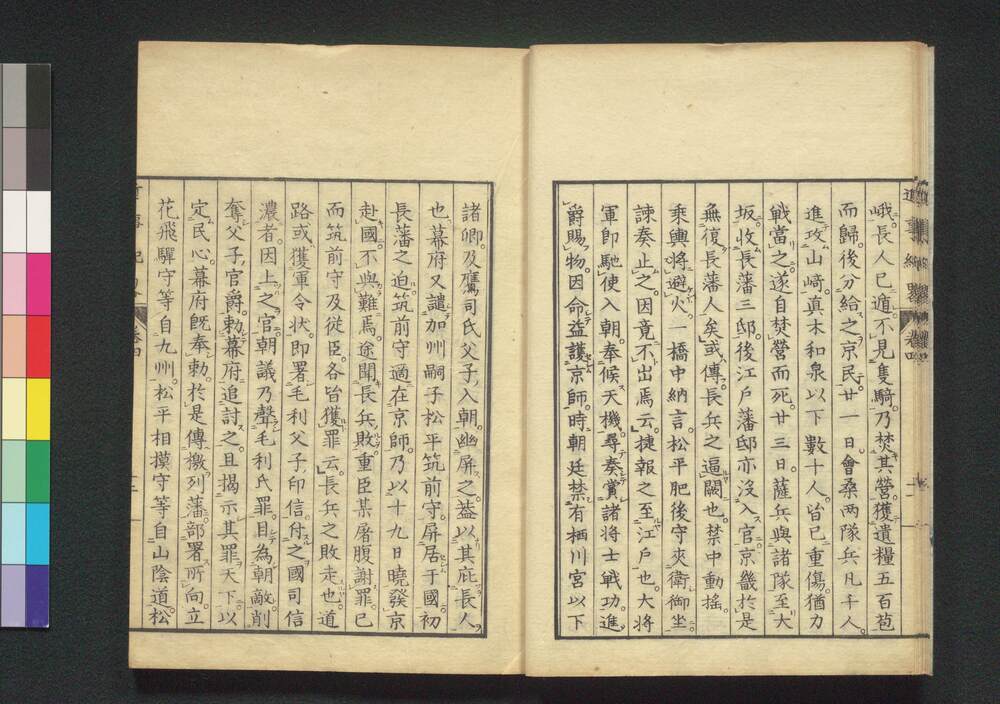 峨。長人已遁。不見隻騎。乃焚其營。獲遺糧五百苞
而歸。後分給之京民。廿一日。會桑两隊兵凡千人。
進攻山﨑。真木和泉以下數十人。皆已重傷。猶力
戰當之。遂自焚營而死。廿三日。薩兵與諸隊至大
坂。收長藩三邸。後江戶藩邸亦沒入官。京畿於是
無復長藩人矣。或傳。長兵之逼闕也。禁中動搖。
乘輿將避火。一橋中納言。松平肥後守夾衛御坐
諫奏止之。因竟不出焉云。捷報之至江戶也。大將
軍即馳使入朝。奉候天機。尋奏賞諸将士戰功。進
爵賜物。因命益護京師。時朝廷禁有栖川宮以下
諸卿。及鷹司氏父子入朝。幽屏之。葢以其庇長人
也。幕府又譴加州嗣子松平筑前守。屏居于國。初
長藩之迫。筑前守適在京師。乃以十九日曉發京
赴國。不與難焉。途聞長兵敗。重臣某屠腹謝罪。已
而筑前守及從臣。各皆獲罪云。長兵之敗走也。道
路或獲軍令状。即署毛利父子印信。付之國司信
濃者。因上之官。朝議乃聲毛利氏罪。目為朝敵。削
奪父子官爵。勅幕府追討之。且揭示其罪天下。以
定民心。幕府既奉勅。於是傳檄列藩。部署所向。立
花飛驒守等自九州。松平相摸守等自山陰道。松